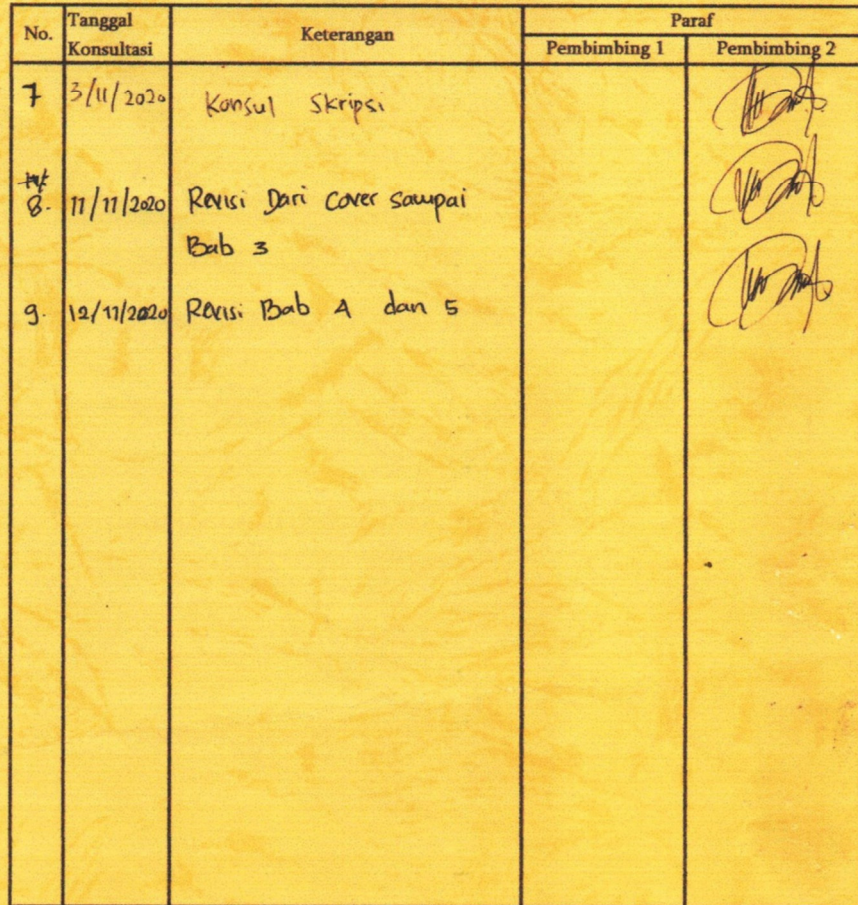 No. Tanggal Konsultasi Keterangan Paraf
Pembimbing 1 Pembimbing 2
7 3/11/2020 Konsul Skripsi
8. 11/11/2020 Revisi Dari Cover sampai
Bab 3
9. 12/11/2020 Revisi Bab 4 dan 5